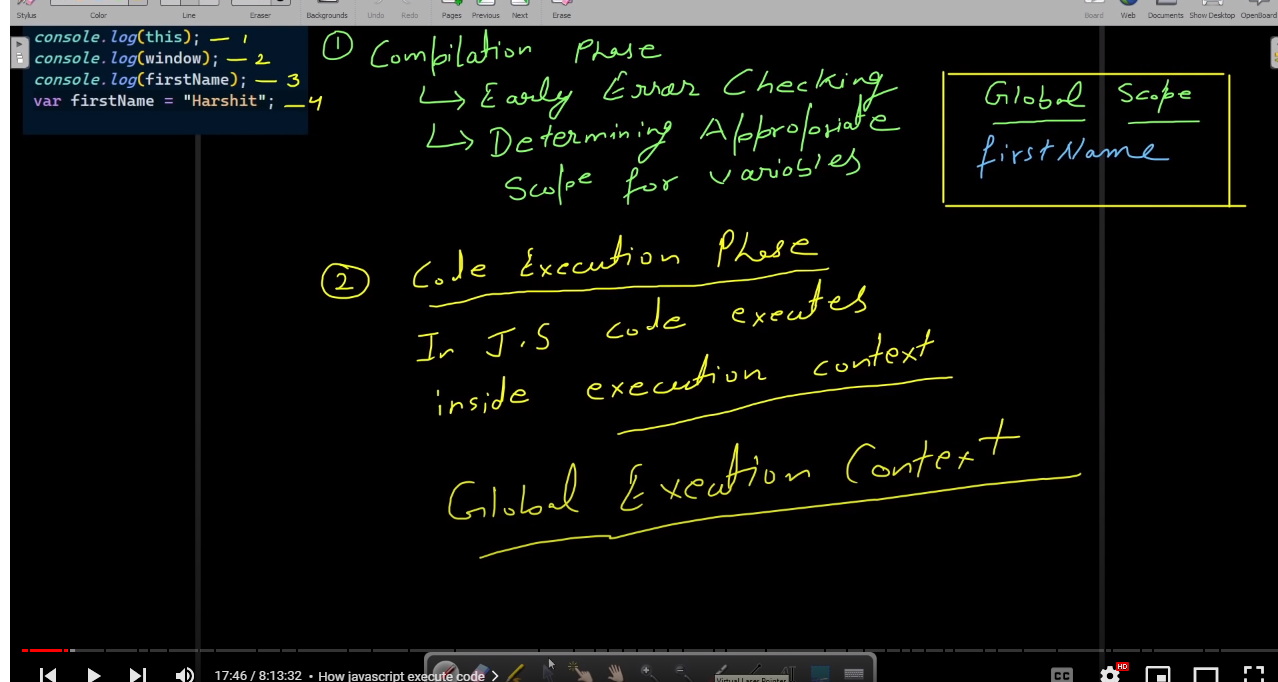 Stylus Color Line Eraser Backgrounds Undo Redo Pages Previous Next Erase Board Web Documents Show Desktop OpenBoard
console.log(this); — 1
console.log(window); — 2
console.log(firstName); — 3
var firstName = "Harshit"; — 4
① Compilation Phase
↳ Early Error Checking
↳ Determining Appropriate
Scope for variables
Global Scope
firstName
② Code Execution Phase
In J.S code executes
inside execution context
Global Execution Context
17:46 / 8:13:32 • How javascript execute code >
Virtual Laser Pointer
CC
HD